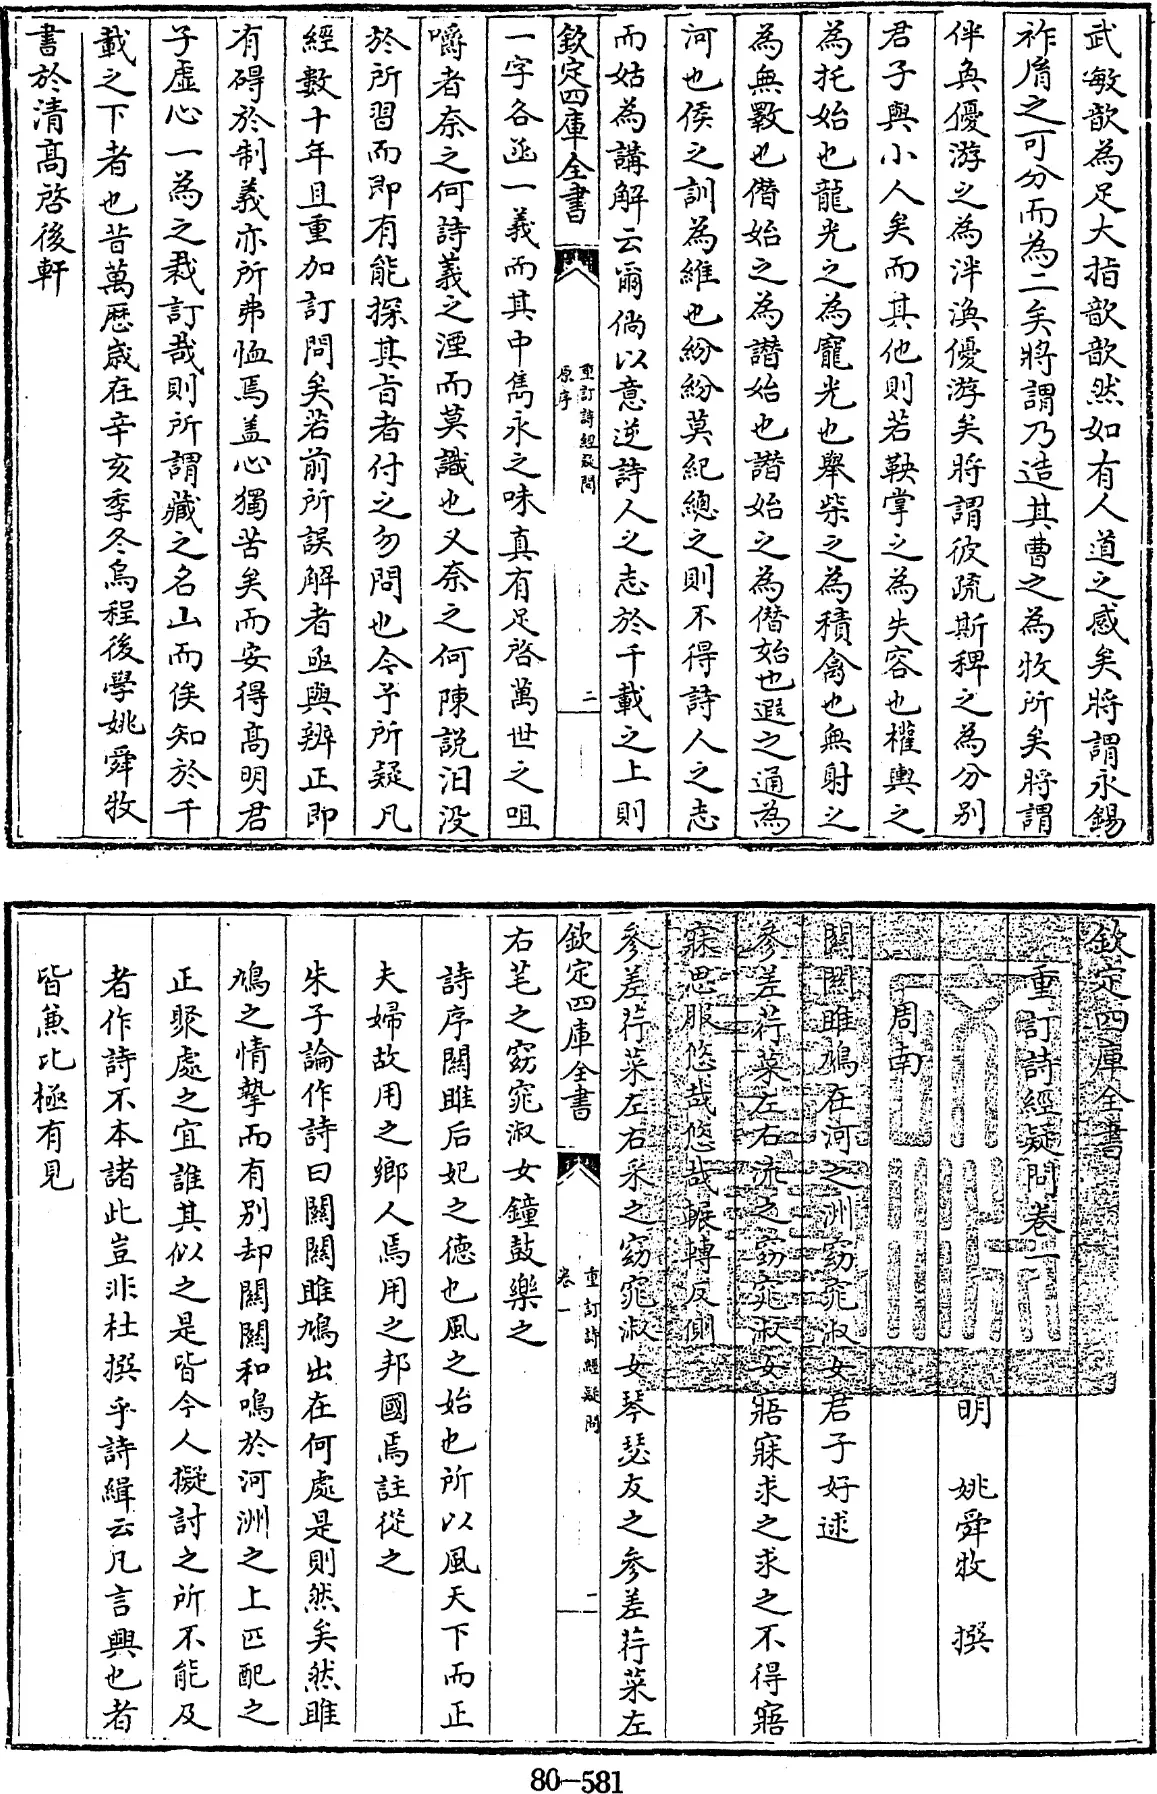 武敏歆為足大指歆歆然如有人道之感矣將謂永錫
祚胤之可分而為二矣將謂乃造其曹之為牧所矣將謂
伴奐優游之為泮渙優游矣將謂彼疏斯稗之為分別
君子與小人矣而其他則若鞅掌之為失容也權輿之
為托始也龍光之為寵光也舉柴之為積禽也無射之
為無斁也僭始之為譖始也譖始之為僭始也遐之通為
河也侯之訓為維也紛紛莫紀總之則不得詩人之志
而姑為講解云爾倘以意逆詩人之志於千載之上則
欽定四庫全書
重訂詩經疑問
原序
二
一字各函一義而其中雋永之味真有足啓萬世之咀
嚼者奈之何詩義之湮而莫識也又奈之何陳說汨没
於所習而即有能探其旨者付之勿問也今予所疑凡
經數十年且重加訂問矣若前所誤解者亟與辨正即
有碍於制義亦所弗恤焉盖心獨苦矣而安得高明君
子虛心一為之裁訂哉則所謂藏之名山而俟知於千
載之下者也昔萬厯歳在辛亥季冬烏程後學姚舜牧
書於清髙啓後軒
欽定四庫全書
重訂詩經疑問卷一
明 姚舜牧 撰
周南
關關雎鳩在河之洲窈窕淑女君子好逑
參差荇菜左右流之窈窕淑女寤寐求之求之不得寤
寐思服悠哉悠哉輾轉反側
參差荇菜左右采之窈窕淑女琴瑟友之參差荇菜左
欽定四庫全書
重訂詩經疑問
卷一
一
右芼之窈窕淑女鐘鼓樂之
詩序關雎后妃之德也風之始也所以風天下而正
夫婦故用之鄉人焉用之邦國焉註從之
朱子論作詩曰關關雎鳩出在何處是則然矣然雎
鳩之情摯而有別却關關和鳴於河洲之上匹配之
正聚處之宜誰其似之是皆今人擬討之所不能及
者作詩不本諸此豈非杜撰乎詩緝云凡言興也者
皆兼比極有見
80-581